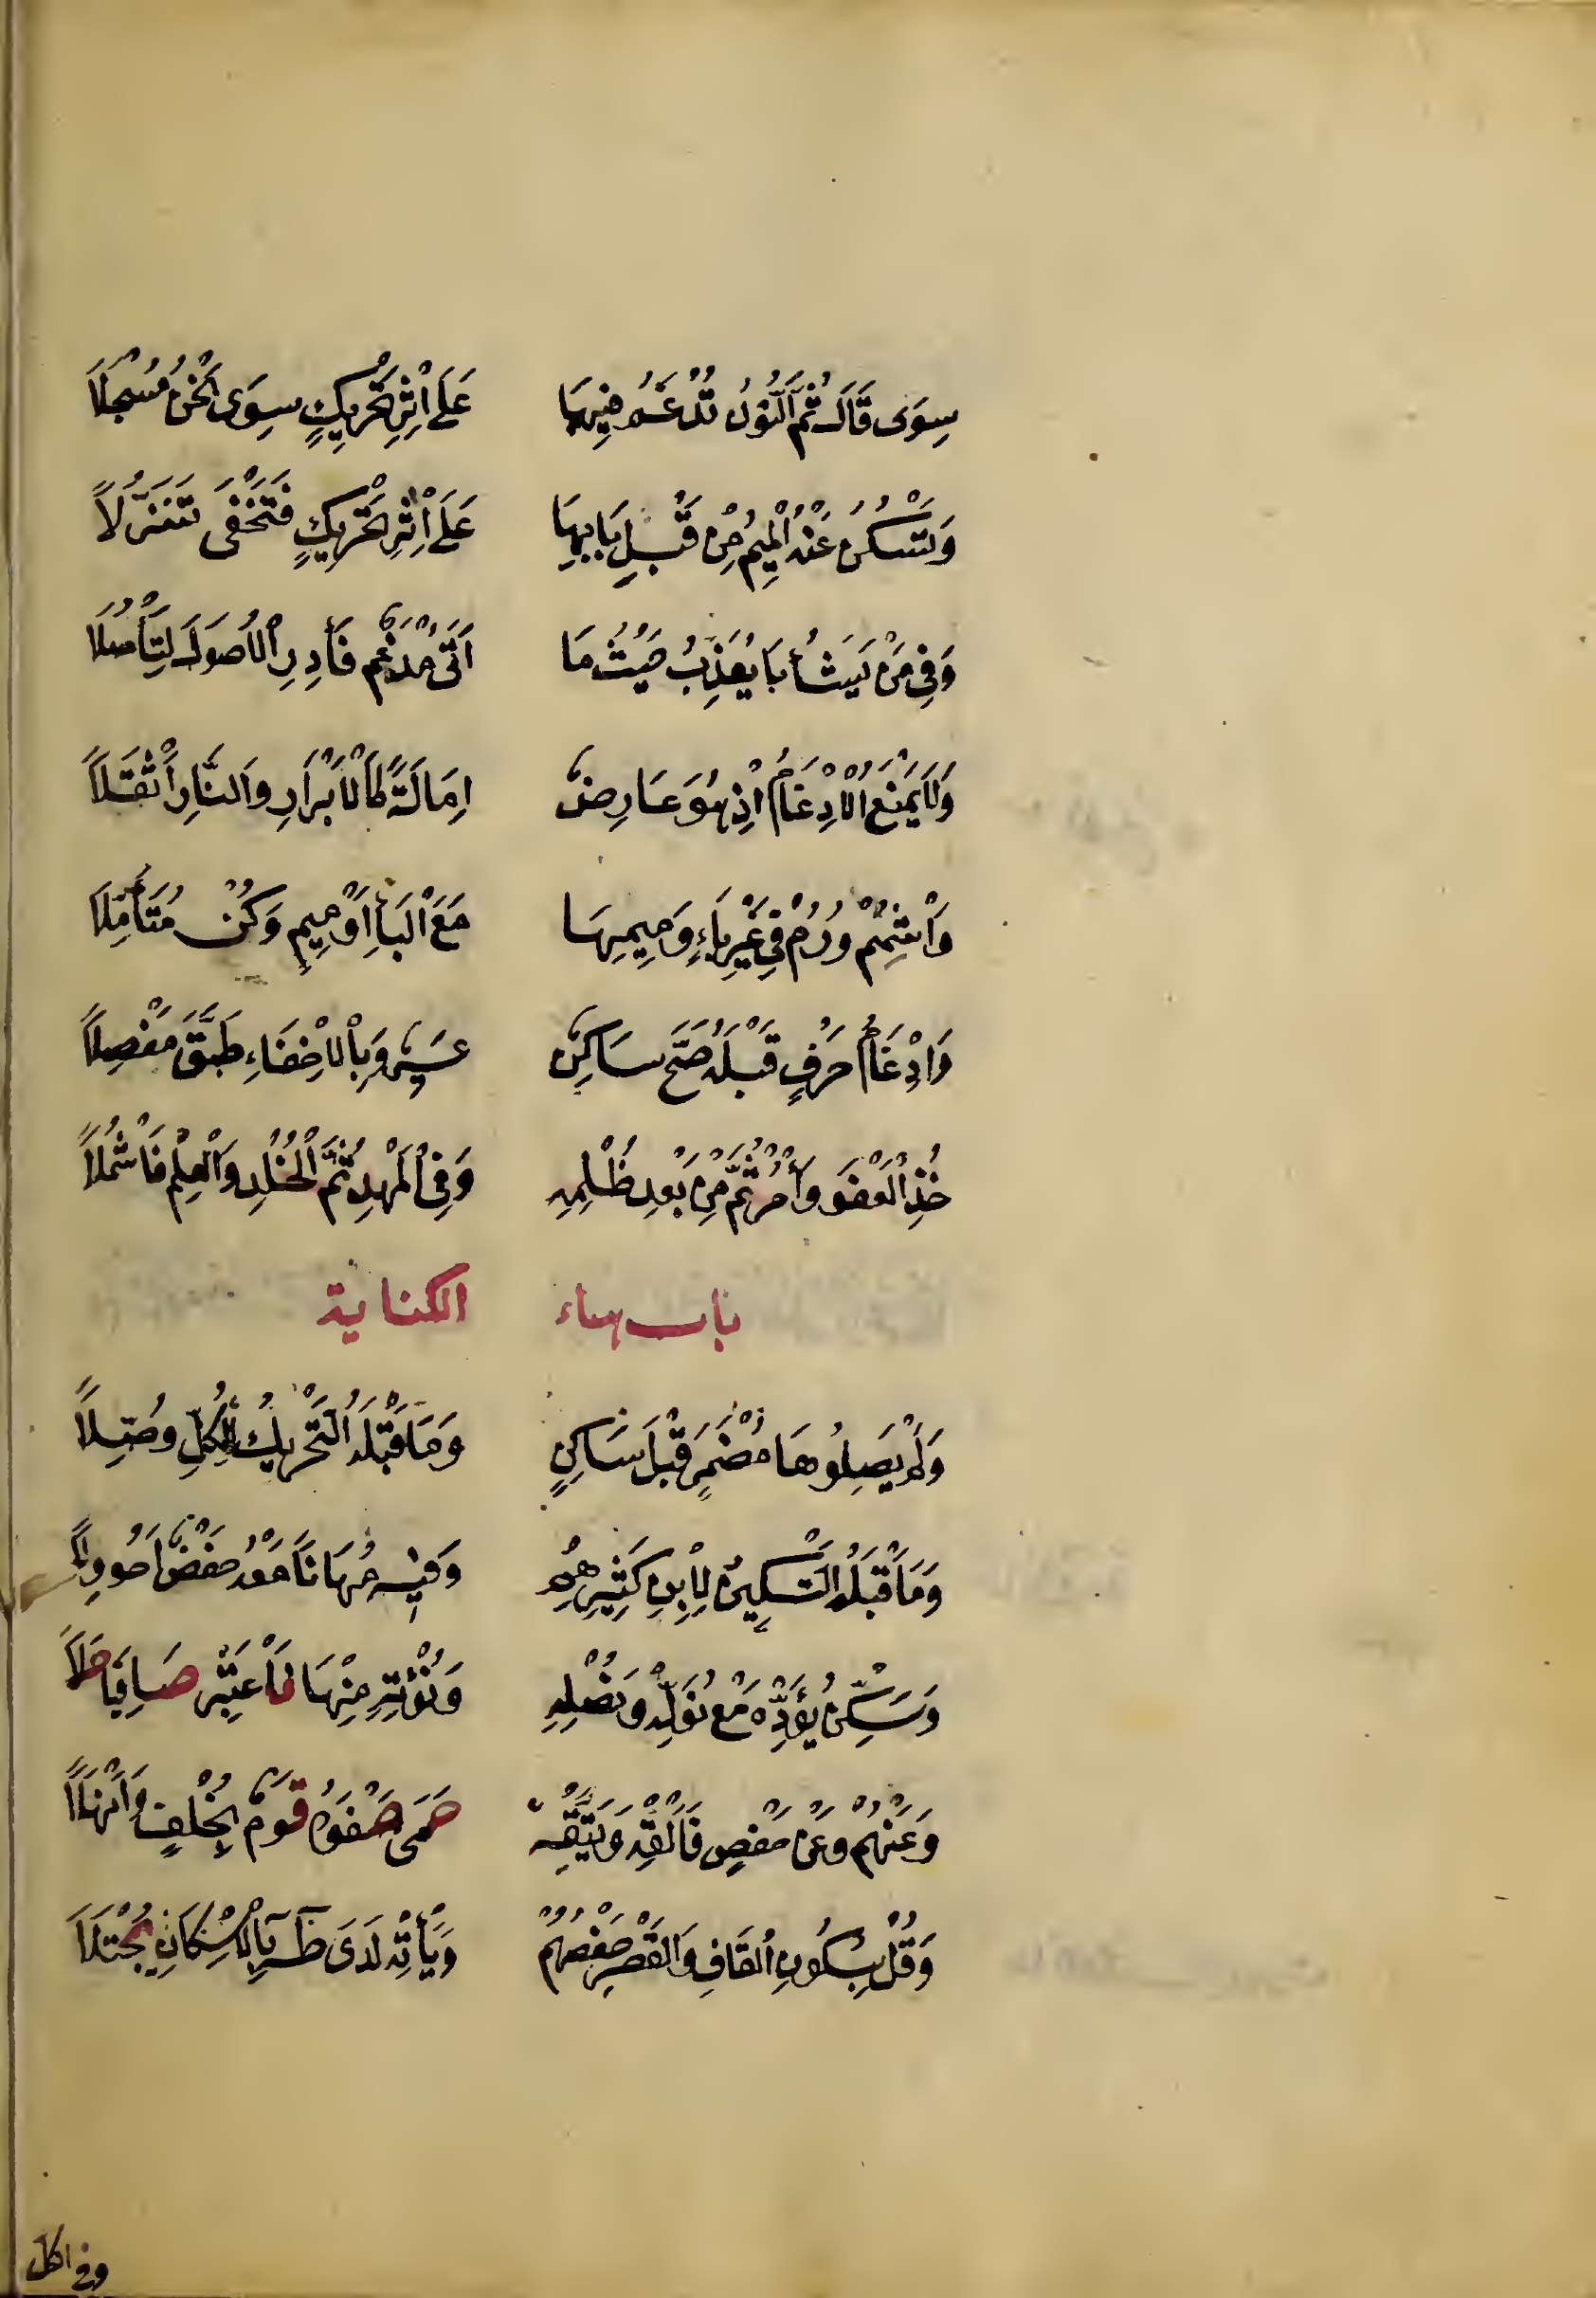 سِوَى قَالَ ثُمَّ النُّونُ تُدْغَمُ فِيهَا عَلَى اِثْرِ تَحْرِيكٍ سِوَى نَحْنُ مُسْجَلَا
وَتَسْكُنُ عَنْهُ الْمِيمُ مِنْ قَبْلِ بَابِهَا عَلَى اِثْرِ تَحْرِيكٍ فَتَخْفَى تَنَزُّلَا
وَفِي مَنْ يَشَأُ بَا يُعَذِّبُ حَيْثُ مَا اَتَى مُدْغَمٌ فَادْرِ الْاُصُولَ لِتَأْصُلَا
وَلَا يَمْنَعُ الْاِدْغَامُ اِذْ هُوَ عَارِضٌ اِمَالَةً كَالْاَبْرَارِ وَالنَّارِ اَثْقَلَا
وَاَشْمِمْ وَرُمْ فِي غَيْرِ بَاءٍ وَمِيمِهَا مَعَ الْبَاءِ اَوْ مِيمٍ وَكُنْ مُتَأَمِّلَا
وَاِدْغَامُ حَرْفٍ قَبْلَهُ صَحَّ سَاكِنٌ عَسِيرٌ وَبِالْاِخْفَاءِ طَبَّقَ مَفْصِلَا
خُذِ الْعَفْوَ وَأْمُرْ ثُمَّ مِنْ بَعْدِ ظُلْمِهِ وَفِي الْمَهْدِ ثُمَّ الْخُلْدِ وَالْعِلْمِ فَاشْمُلَا
باب هاء الكناية
وَلَمْ يَصِلُوا هَا مُضْمَرٍ قَبْلَ سَاكِنٍ وَمَا قَبْلَهُ التَّحْرِيكُ لِلْكُلِّ وُصِّلَا
وَمَا قَبْلَهُ التَّسْكِينُ لِابْنِ كَثِيرِهِمْ وَفِيهِ مُهَانًا مَعْهُ حَفْصٌ اَخُو وِلَا
وَسَكِّنْ يُؤَدِّهْ مَعْ نُوَلِّهْ وَنُصْلِهِ وَنُؤْتِهِ مِنْهَا فَاعْتَبِرْ صَافِيًا حَلَا
وَعَنْهُمْ وَعَنْ حَفْصٍ فَأَلْقِهْ وَيَتَّقِهْ حَمَى صَفْوَهُ قَوْمٌ بِخُلْفٍ وَاَنْهَلَا
وَقُلْ بِسُكُونِ الْقَافِ وَالْقَصْرِ حَفْصُهُمْ وَيَأْتِهْ لَدَى طٰهٰ بِالْاِسْكَانِ يُجْتَلَا
وفي الكل